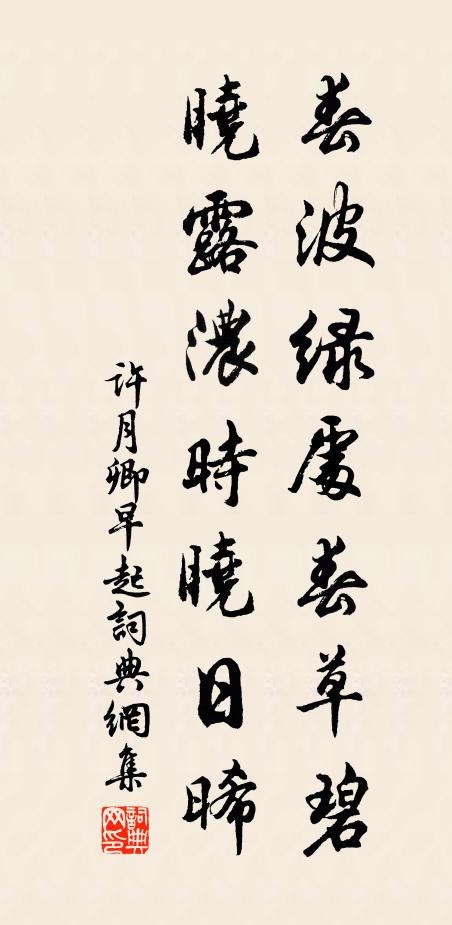 春波綠處春草碧
曉露濃時曉日晞
許月卿早起詞典網集
詞典网印